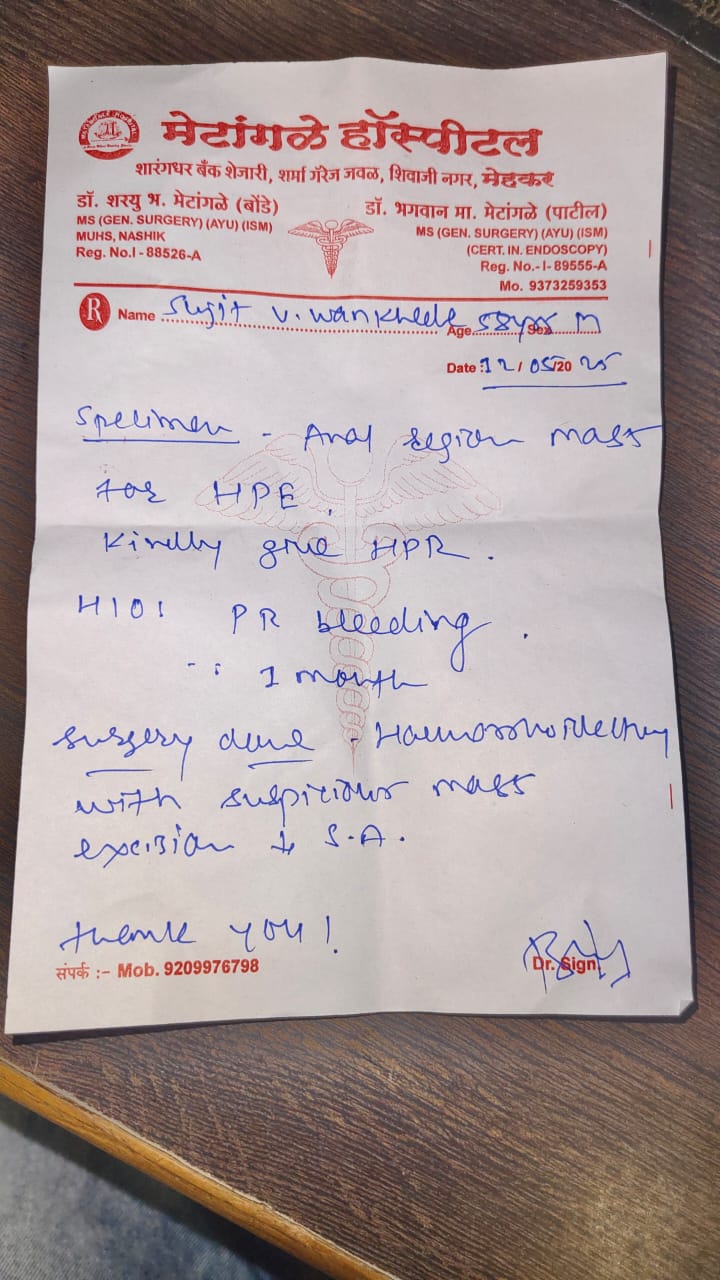 मेटांगळे हॉस्पीटल
शारंगधर बँक शेजारी, शर्मा गॅरेज जवळ, शिवाजी नगर, मेहकर
डॉ. शरयु भ. मेटांगळे (बोंडे)
MS (GEN. SURGERY) (AYU) (ISM)
MUHS, NASHIK
Reg. No.I - 88526-A
डॉ. भगवान मा. मेटांगळे (पाटील)
MS (GEN. SURGERY) (AYU) (ISM)
(CERT. IN. ENDOSCOPY)
Reg. No.- I- 89555-A
Mo. 9373259353
R Name Sujit V. Wankhede Age 58yrs Sex M
Date :12/05/2025
Specimen - Anal region mass
for HPE.
Kindly give HPR.
H/O: PR bleeding.
1 month
Surgery done - Haemorrhoidectomy
with suspicious mass
excision S.A.
Thank you!
संपर्क :- Mob. 9209976798
Dr. Sign